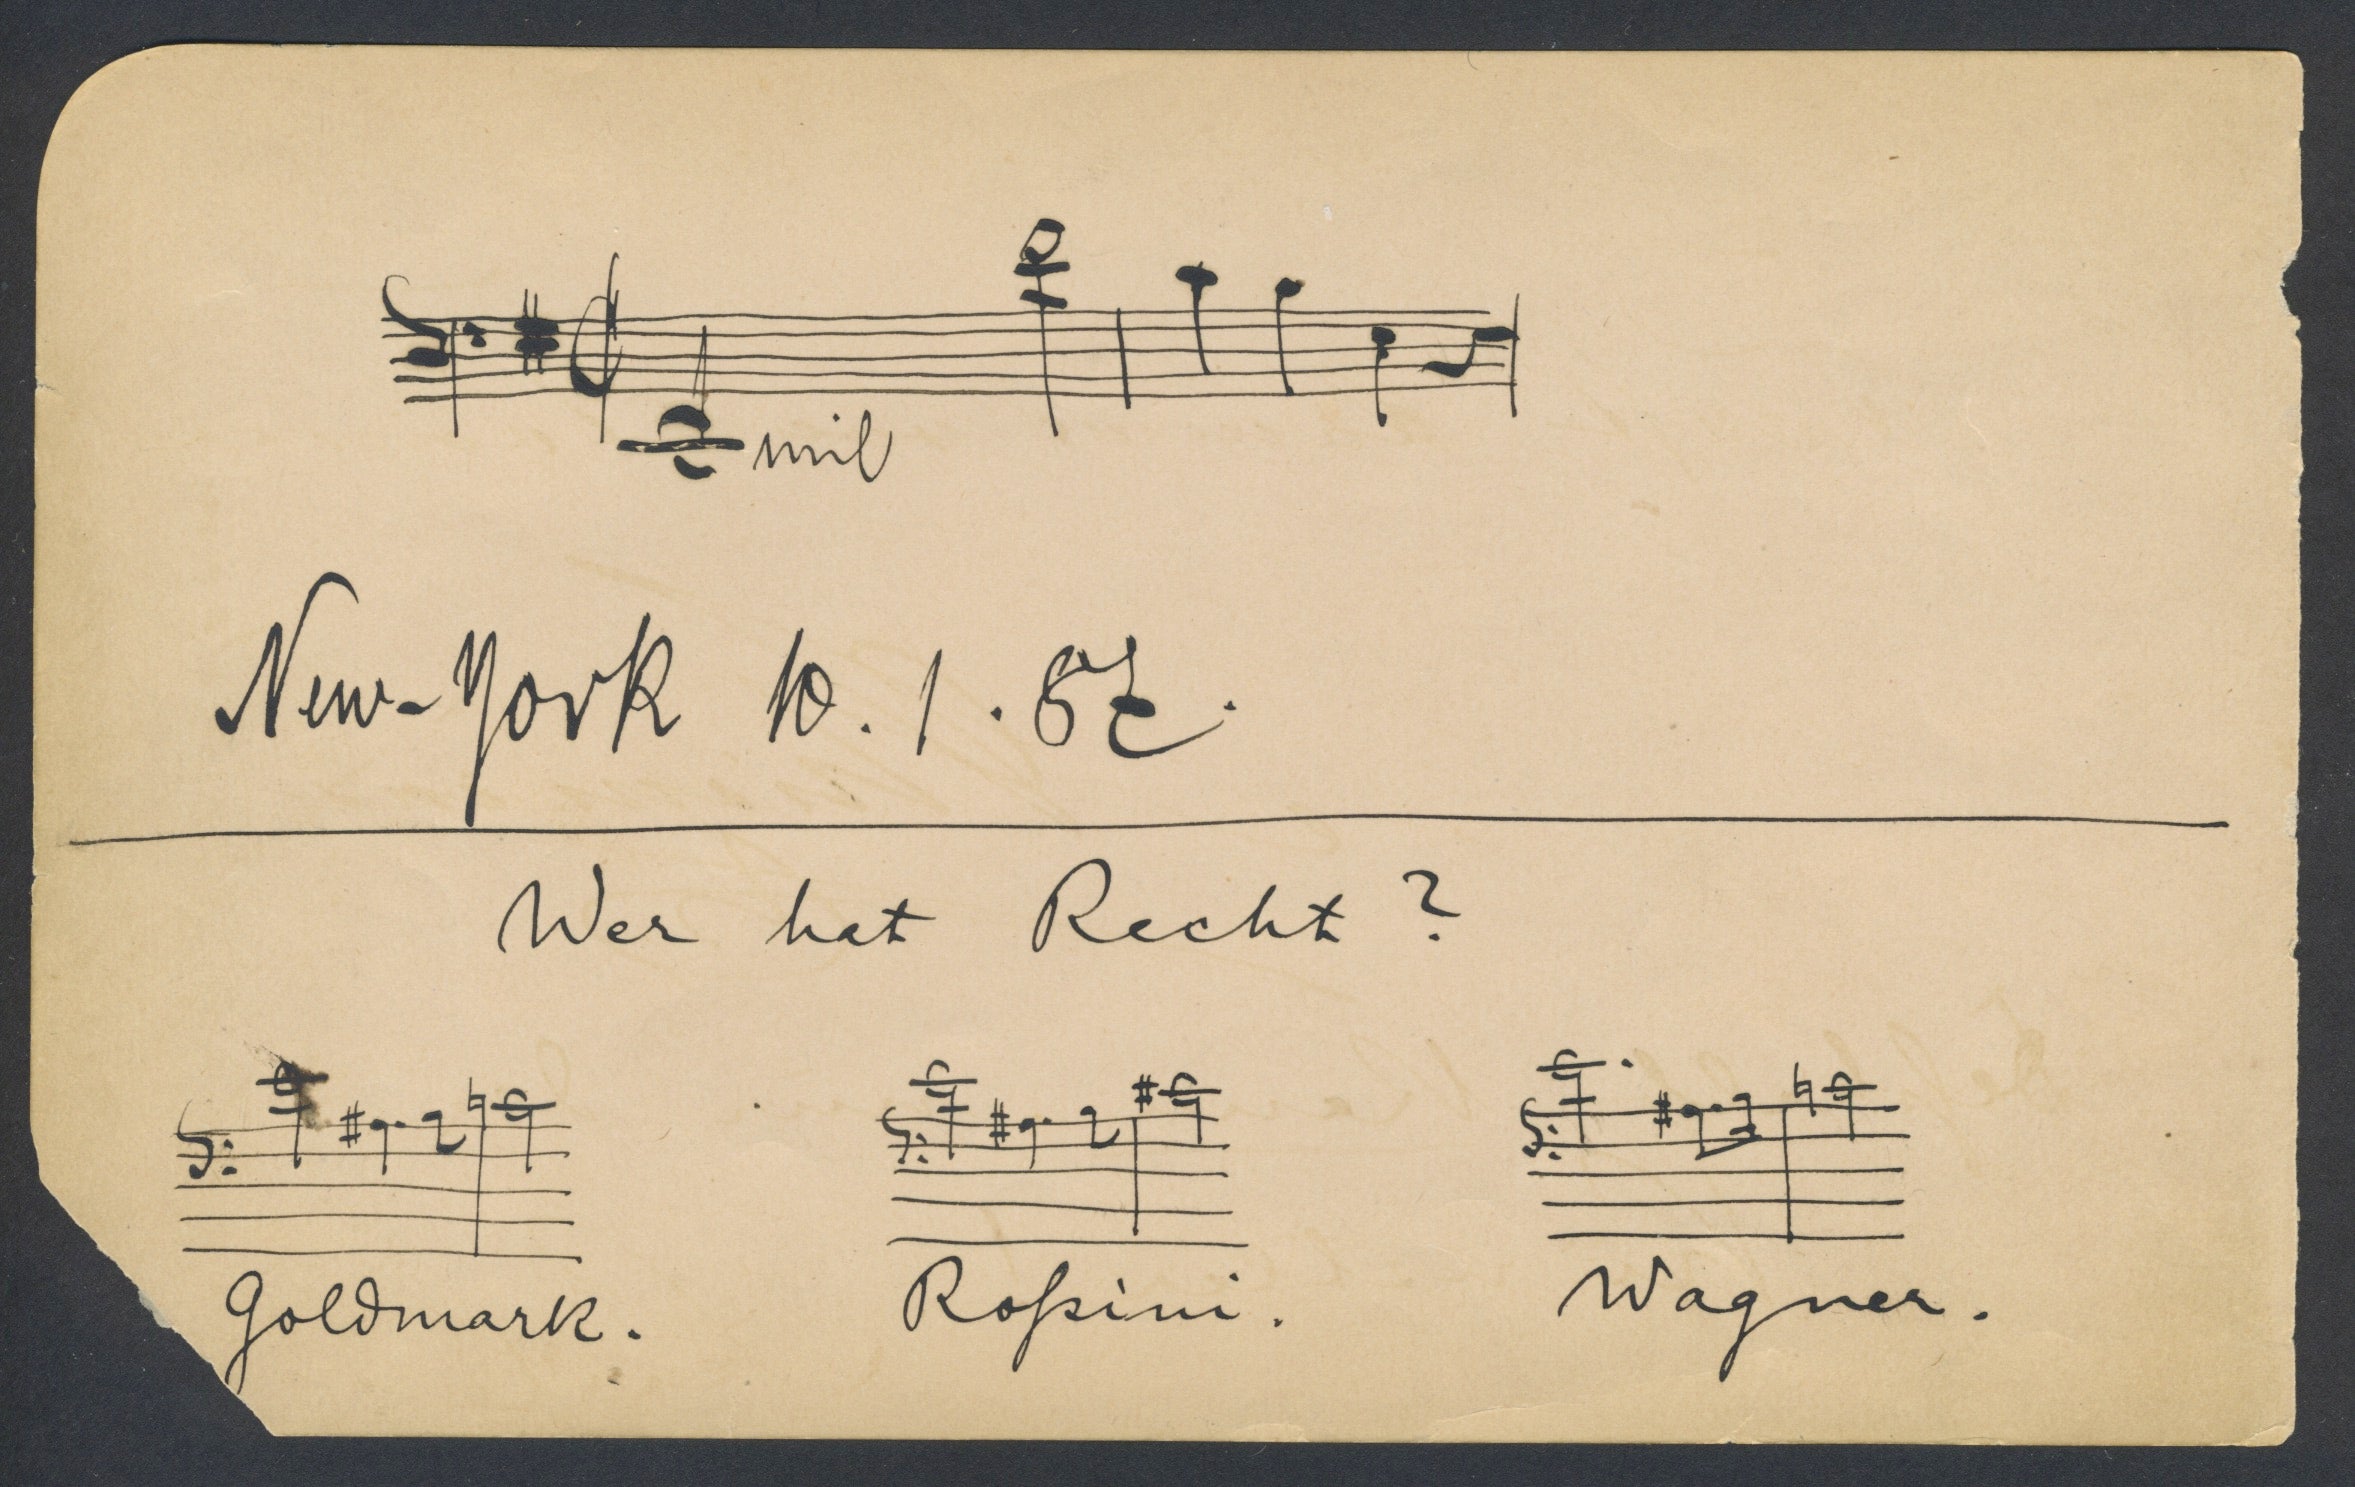 mil
New-York 10. 1. 87.
Wer hat Recht?
Goldmark. Roſsini. Wagner.